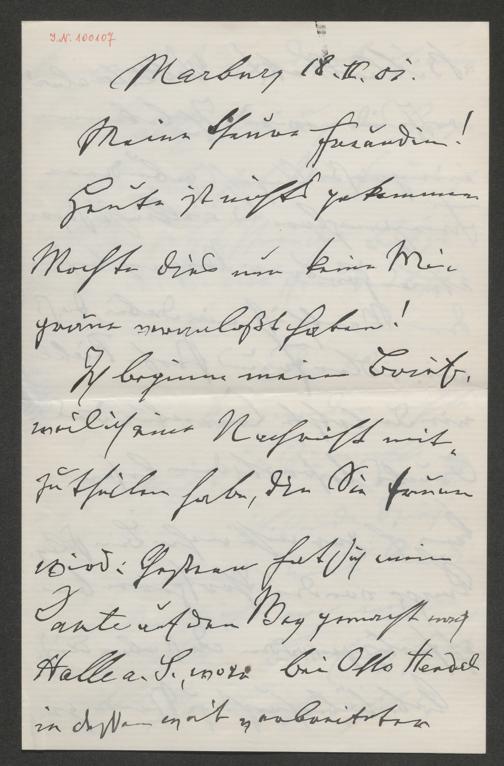 J.N. 100107
Marburg 18. IV. 01.
Meine theure Freundin!
Heute ist nichts gekommen
Möchte dies nur keine Mi-
gräne veranlaßt haben!
Ich beginne meinen Brief,
weil ich eine Nachricht mit-
zutheilen habe, die Sie freuen
wird: Gestern hat sich mein
Dante auf den Weg gemacht nach
Halle a. S., wo er bei Otto Hendel
in dessen weit verbreiteter